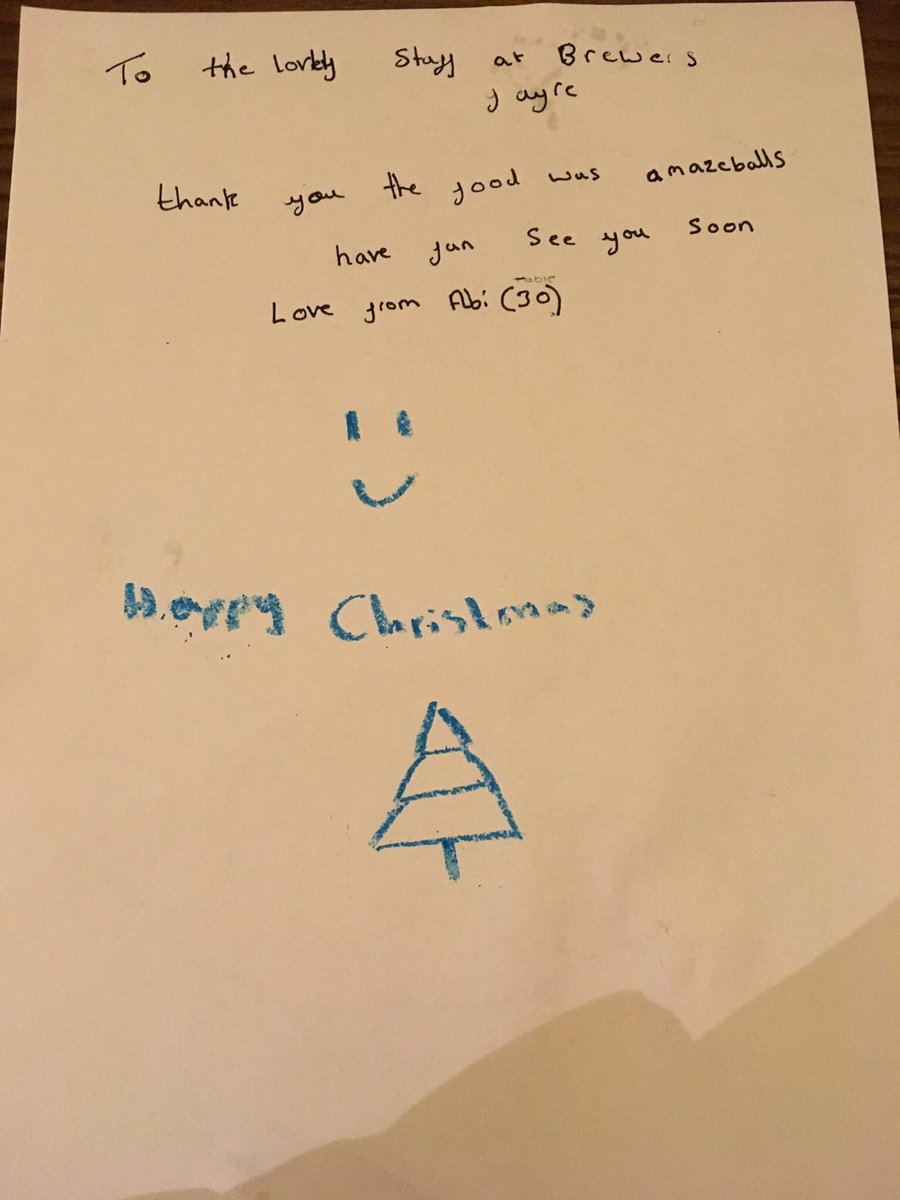 To the lovely Staff at Brewers
fayre
thank you the food was amazeballs
have fun see you soon
Table
Love from Abi (30)
Happy Christmas